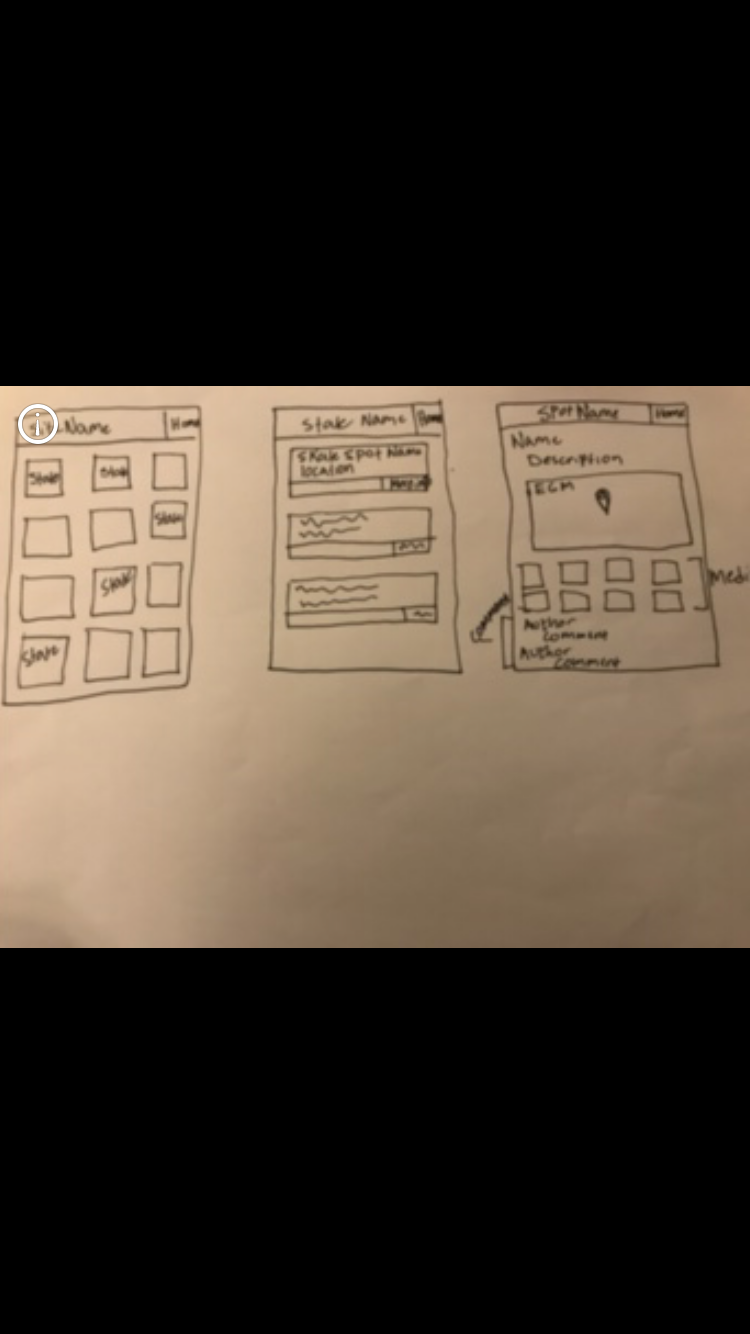 Name
Home
State
State
State
State
State
State Name
Home
Skate Spot Name
location
Spot Name
Home
Name
Description
EGM
Author
comment
Author
comment